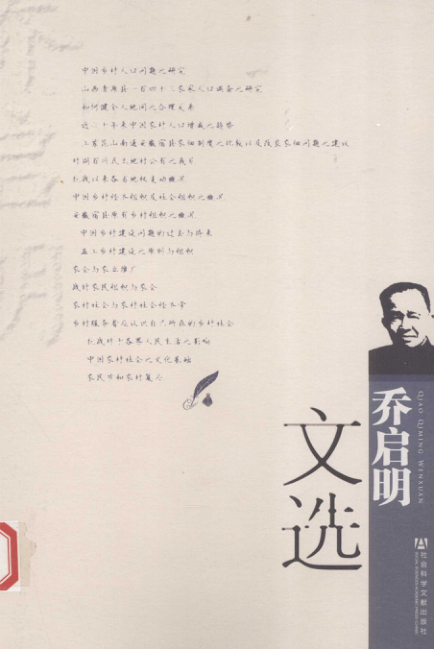 中国乡村人口问题之研究
山西清源县一百四十三农家人口调查之研究
如何健全人地间之合理关系
近二十年来中国农村人口增减之趋势
江苏昆山南通安徽宿县农佃制度之比较以及改良农佃问题之建议
抗战以来各省地权变动概况
中国乡村经济组织及社会组织之概况
安徽宿县原有乡村组织之概况
中国乡村建设问题的过去与将来
基上乡村建设之原则与组织
农会与农业推广
战时农民组织与农会
农村社会与农村社会经济学
乡村服务者应认识自己所在的乡村社会
抗战对于各界人民生活之影响
中国农村社会之文化基础
农民节和农村复兴
乔启明
QIAO QIMING WENXUAN
文选
社会科学文献出版社
SOCIAL SCIENCES ACADEMIC PRESS (CHINA)